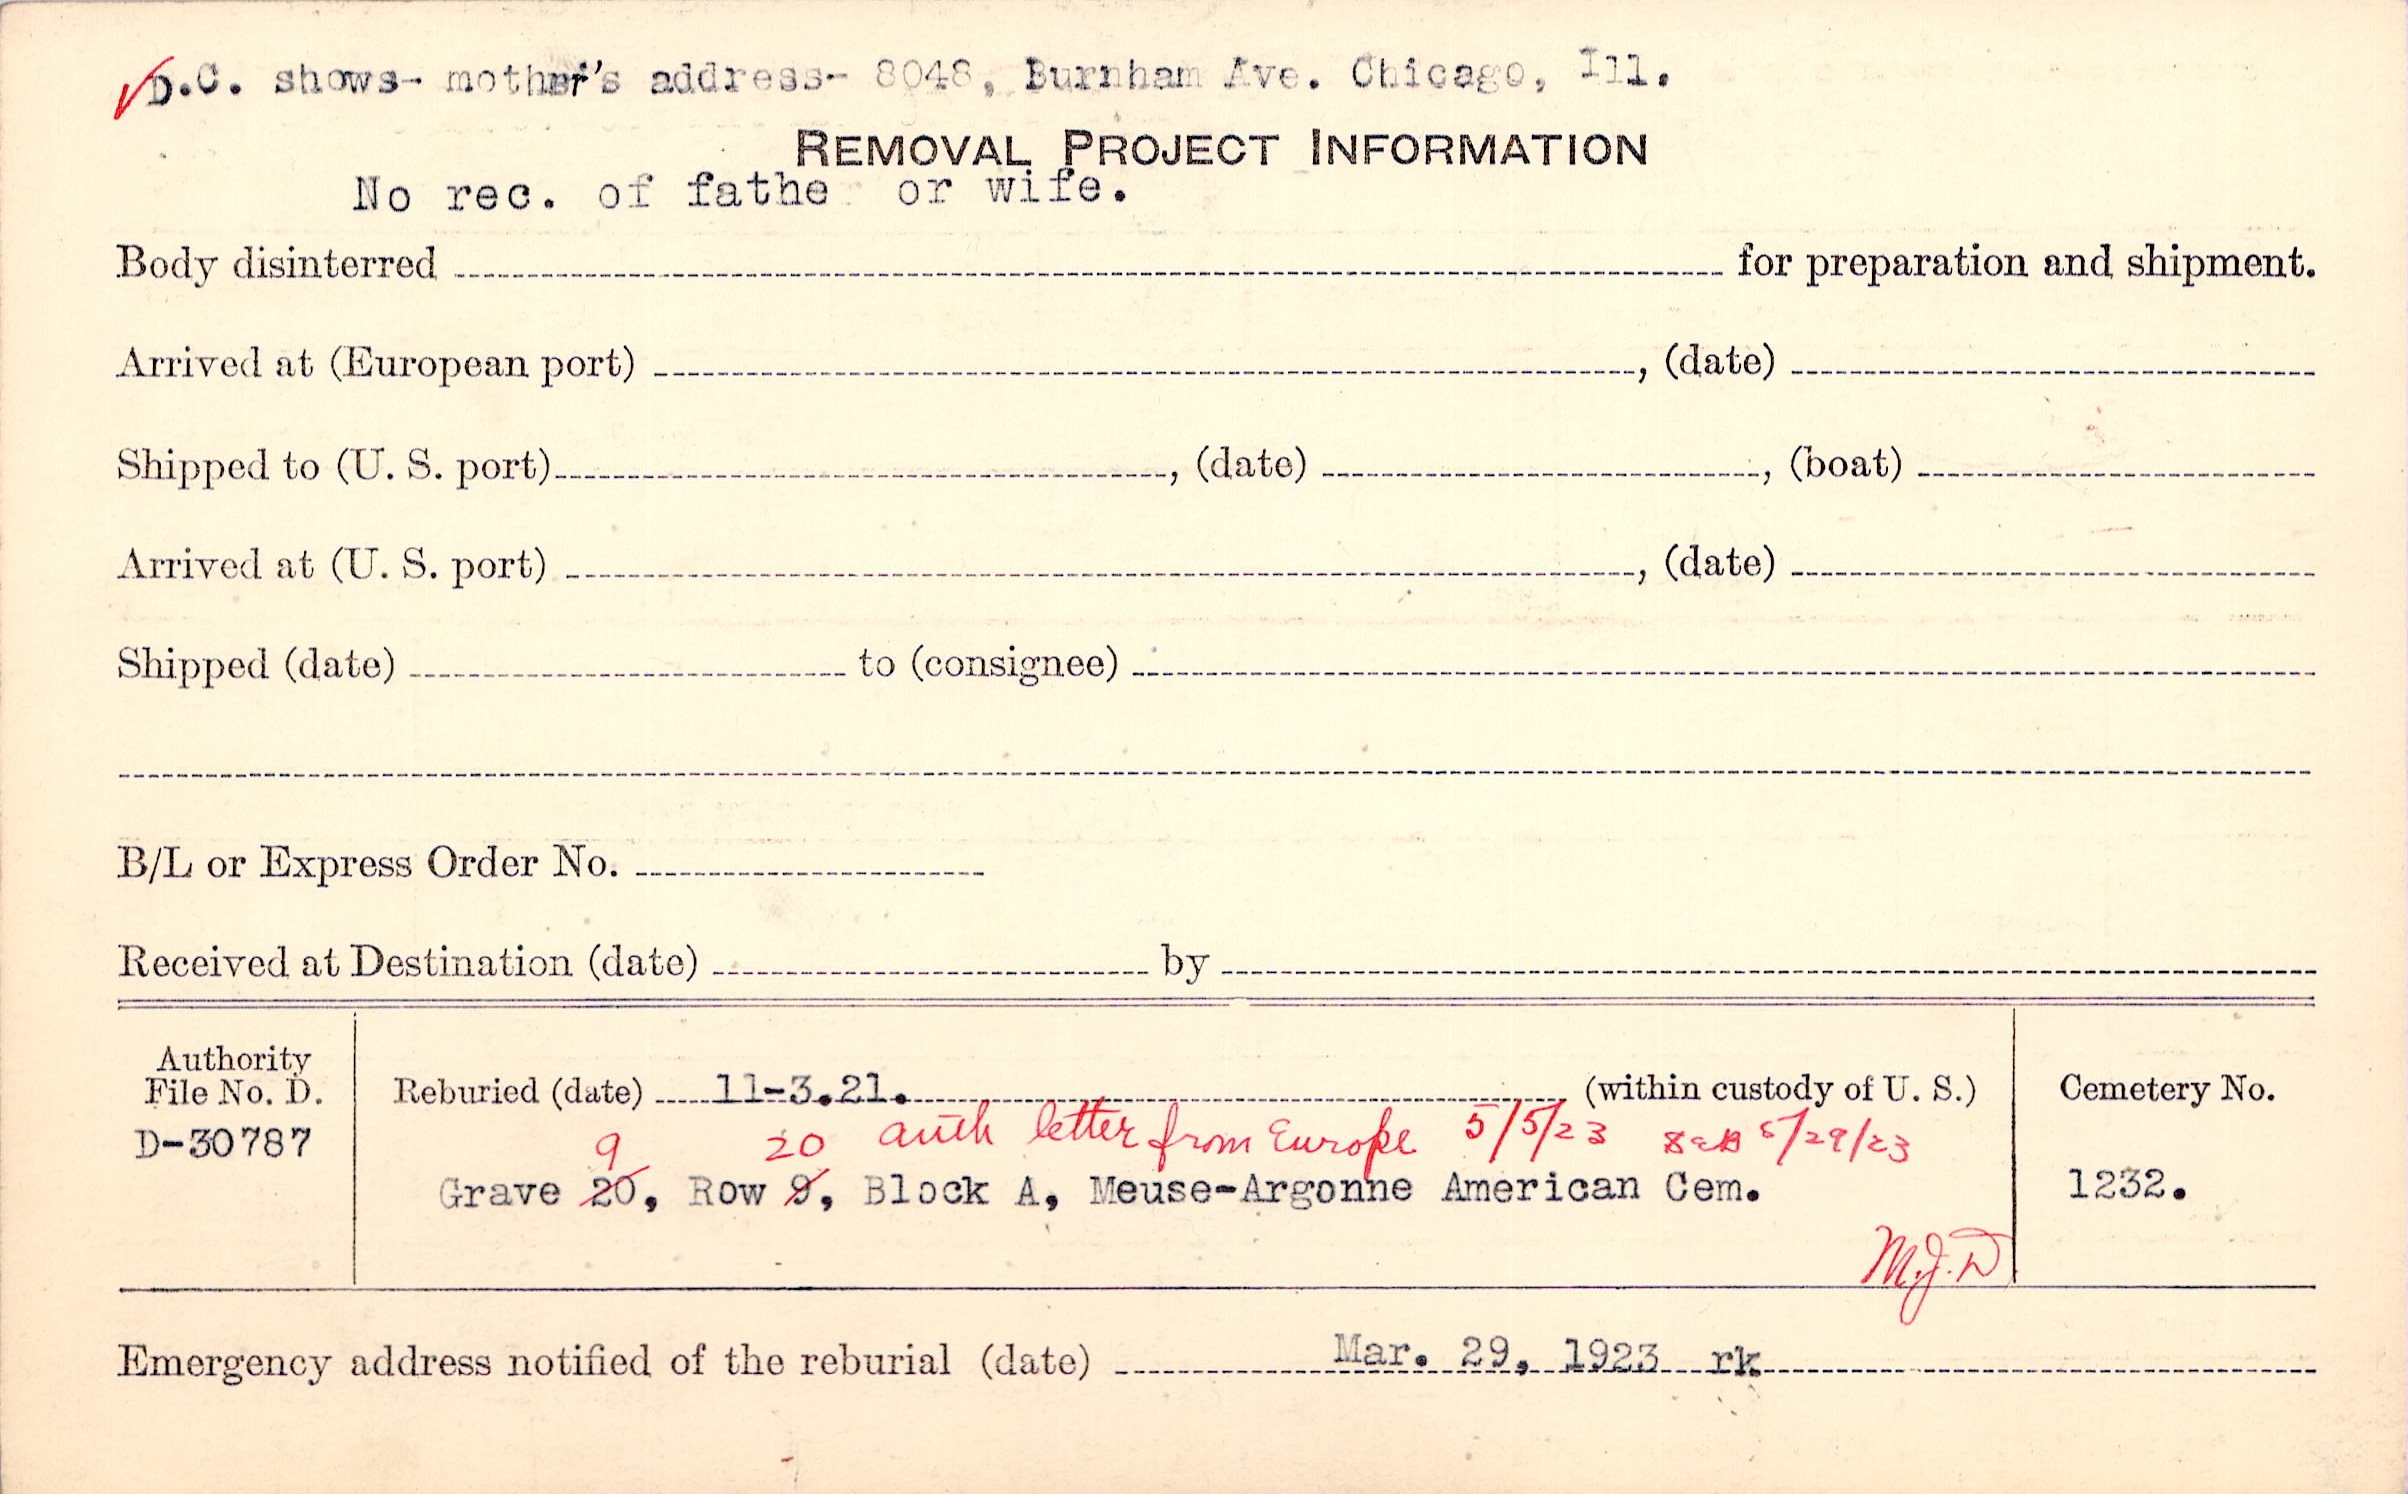 D.C. shows- mother's address- 8048, Burnham Ave. Chicago, Ill.
REMOVAL PROJECT INFORMATION
No rec. of fathe or wife.
Body disinterred for preparation and shipment.
Arrived at (European port) , (date)
Shipped to (U. S. port) , (date) , (boat)
Arrived at (U. S. port) , (date)
Shipped (date) to (consignee)
B/L or Express Order No.
Received at Destination (date) by
Authority
File No. D.
D-30787
Reburied (date) 11-3.21. (within custody of U. S.)
9 20 auth letter from Europe 5/5/23 5/29/23
Grave 20, Row 9, Block A, Meuse-Argonne American Cem.
M.J.D
Cemetery No.
1232.
Emergency address notified of the reburial (date) Mar. 29, 1923 rk